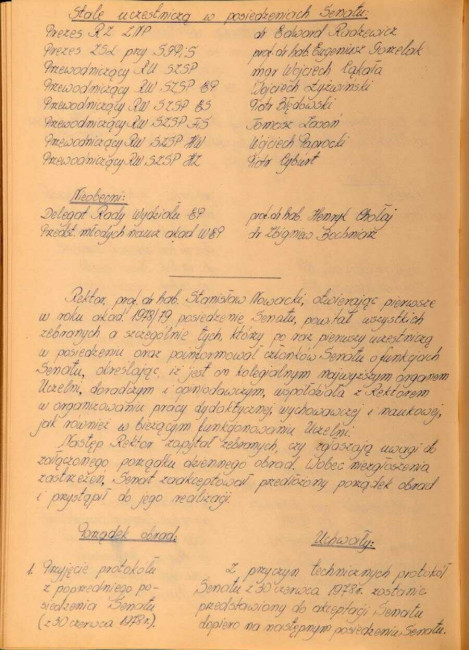 Stale uczestniczą w posiedzeniach Senatu:
Prezes RZ ZNP dr Edward Radzewicz
Prezes ZSL przy SGPiS prof. dr hab. Eugeniusz Gorzelak
Przewodniczący RU SZSP mgr Wojciech
Przewodniczący RW SZSP EP Wojciech
Przewodniczący RW SZSP ES Piotr Błędowski
Przewodniczący RW SZSP FiS Tomasz
Przewodniczący RW SZSP HW Wojciech
Przewodniczący RW SZSP HZ Piotr Cyburt
Nieobecni:
Delegat Rady Wydziału EP prof. dr hab. Henryk Chołaj
Przedst. młodych nauk. akad W EP dr Zbigniew Bochniarz
Rektor, prof. dr hab. Stanisław Nowacki, otwierając pierwsze
w roku akad. 1978/79 posiedzenie Senatu, powitał wszystkich
zebranych a szczególnie tych, którzy po raz pierwszy uczestniczą
w posiedzeniu oraz poinformował członków Senatu o funkcjach
Senatu, określając, iż jest on kolegialnym najwyższym organem
Uczelni, doradczym i opiniodawczym, współdziała z Rektorem
w organizowaniu pracy dydaktycznej, wychowawczej i naukowej
jak również w bieżącym funkcjonowaniu Uczelni.
Następ. Rektor zapytał zebranych, czy zgłaszają uwagi do
załączonego porządku dziennego obrad. Wobec niezgłoszenia
zastrzeżeń, Senat zaakceptował przedłożony porządek obrad
i przystąpił do jego realizacji.
Porządek obrad: Uchwały:
1. Przyjęcie protokółu Z przyczyn technicznych protokół
z poprzedniego po- Senatu z 30 czerwca 1978r. zostanie
siedzenia Senatu przedstawiony do akceptacji Senatu
(z 30 czerwca 1978r.). dopiero na następnym posiedzeniu Senatu.